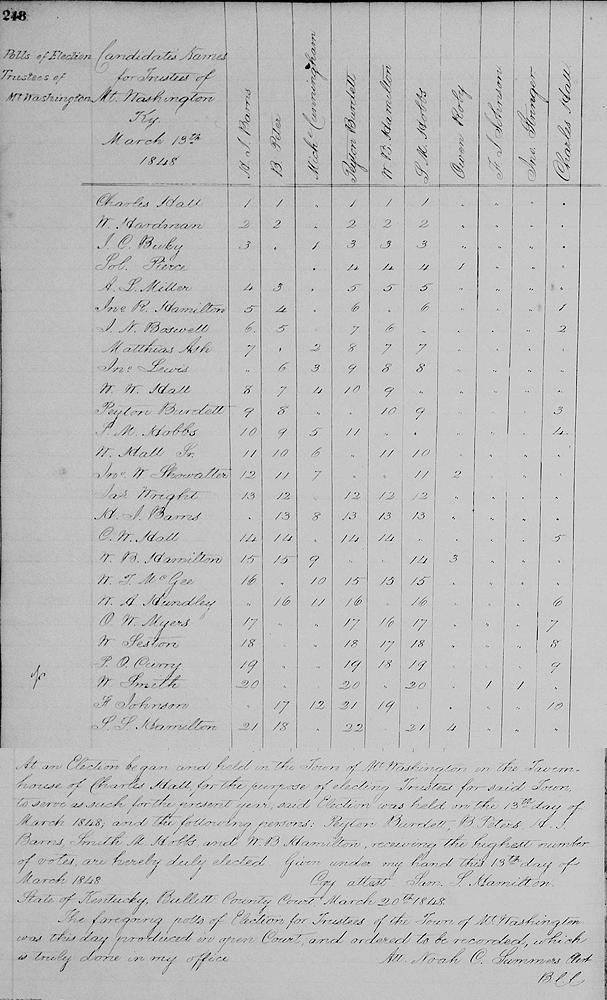 248
Polls of Election
Trustees of
Mt Washington
Candidates Names
for Trustees of
Mt. Washington
Ky.
March 13th
1848
H. J. Barns
B. Peter
Mich. Cunningham
Peyton Burdett
W B. Hamilton
S. M. Hobbs
Owen Roby
T. J. Johnson
Jno. Stringer
Charles Hall
Charles Hall 1 1 . 1 1 1 . . . .
W. Hardman 2 2 . 2 2 2 . . . .
J. C. Buky 3 . 1 3 3 3 . . . .
Sol. Pierce . . 4 4 4 1 . . .
A. L. Miller 4 3 . 5 5 5 . . . .
Jno R. Hamilton 5 4 . 6 . 6 . . . 1
J. N. Boswell 6 5 . 7 6 . . . . 2
Matthias Ash 7 . 2 8 7 7 . . . .
Jno. Lewis " 6 3 9 8 8 . . . .
W. W. Hall 8 7 4 10 9 . . . . .
Peyton Burdett 9 8 . . 10 9 . . . 3
S. M. Hobbs 10 9 5 11 . . . . . 4
W. Hall Sr. 11 10 6 . 11 10 . . . .
Jno. W. Showalter 12 11 7 . . 11 2 . . .
Jas Wright 13 12 . 12 12 12 . . . .
H. J. Barns . 13 8 13 13 13 . . . .
C. W. Hall 14 14 . 14 14 . . . . 5
W. B. Hamilton 15 15 9 . . 14 3 . . .
W. T. McGee 16 . 10 15 15 15 . . . .
W. A Hundley " 16 11 16 . 16 . . . 6
O. W. Myers 17 . . 17 16 17 . . . 7
W Seston 18 . . 18 17 18 . . . 8
P. O. Curry 19 . . 19 18 19 . . . 9
W Smith 20 . . 20 . 20 . 1 1 .
F Johnson . 17 12 21 19 . . . . 10
S. S. Hamilton 21 18 . 22 . 21 4 . . .
At an Election began and held in the Town of Mt Washington in the Tavern-
house of Charles Hall, for the purpose of electing Trustees for said Town,
to serve as such for the present year, said Election was held on the 13th day of
March 1848; and the following persons: Peyton Burdett, B Peters, H. J.
Barns, Smith M. Hobbs and W. B. Hamilton, receiving the highest number
of votes, are hereby duly elected. Given under my hand this 13th day of
March 1848 Copy attest S. Hamilton.
State of Kentucky, Bullitt County Court March 20th 1848.
The foregoing polls of Election for Trustees of the Town of Mt Washington
was this day produced in open Court, and ordered to be recorded, which
is truly done in my office Att. Noah C. Summers Clerk
B C C